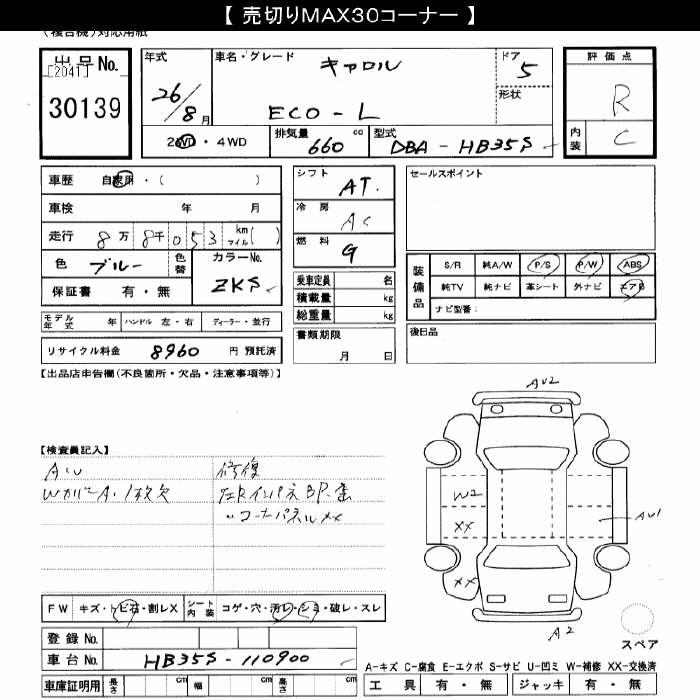 【 売切りMAX30コーナー 】
(複合機)対応用紙
出品No.
[2041]
30139
年式
26/8月
車名・グレード
キャロル
ECO-L
ドア
5
形状
評価点
R
内装
C
2WD・4WD
排気量 660 cc
型式 DBA-HB35S
車歴 自家用・( )
車検 年 月
走行 8万8千053 km マイル( )
色 ブルー
色替
カラーNo.
ZKS
保証書 有・無
モデル年式 年 ハンドル 左・右 ディーラー・並行
リサイクル料金 8960 円 預託済
シフト
AT.
冷房
AC
燃料
G
乗車定員 名
積載量 kg
総重量 kg
書類期限
月 日
セールスポイント
装備品
S/R 純A/W P/S P/W ABS
純TV 純ナビ 革シート 外ナビ エアB
ナビ型番:
後日品
【出品店申告欄(不良箇所・欠品・注意事項等)】
【検査員記入】
AU
WカバーA・1枚欠
修復
左Rインパネ BP・歪
〃コーナーパネルXX
AU2
W2
XX
AU1
XX
A2
スペア
FW キズ・トビ石・割レX
シート内装 コゲ・穴・汚レ・シミ・破レ・スレ
登録No.
車台No. HB35S-110900
車庫証明用 長さ cm 幅 cm 高さ cm
A-キズ C-腐食 E-エクボ S-サビ U-凹ミ W-補修 XX-交換済
工具 有・無 ジャッキ 有・無